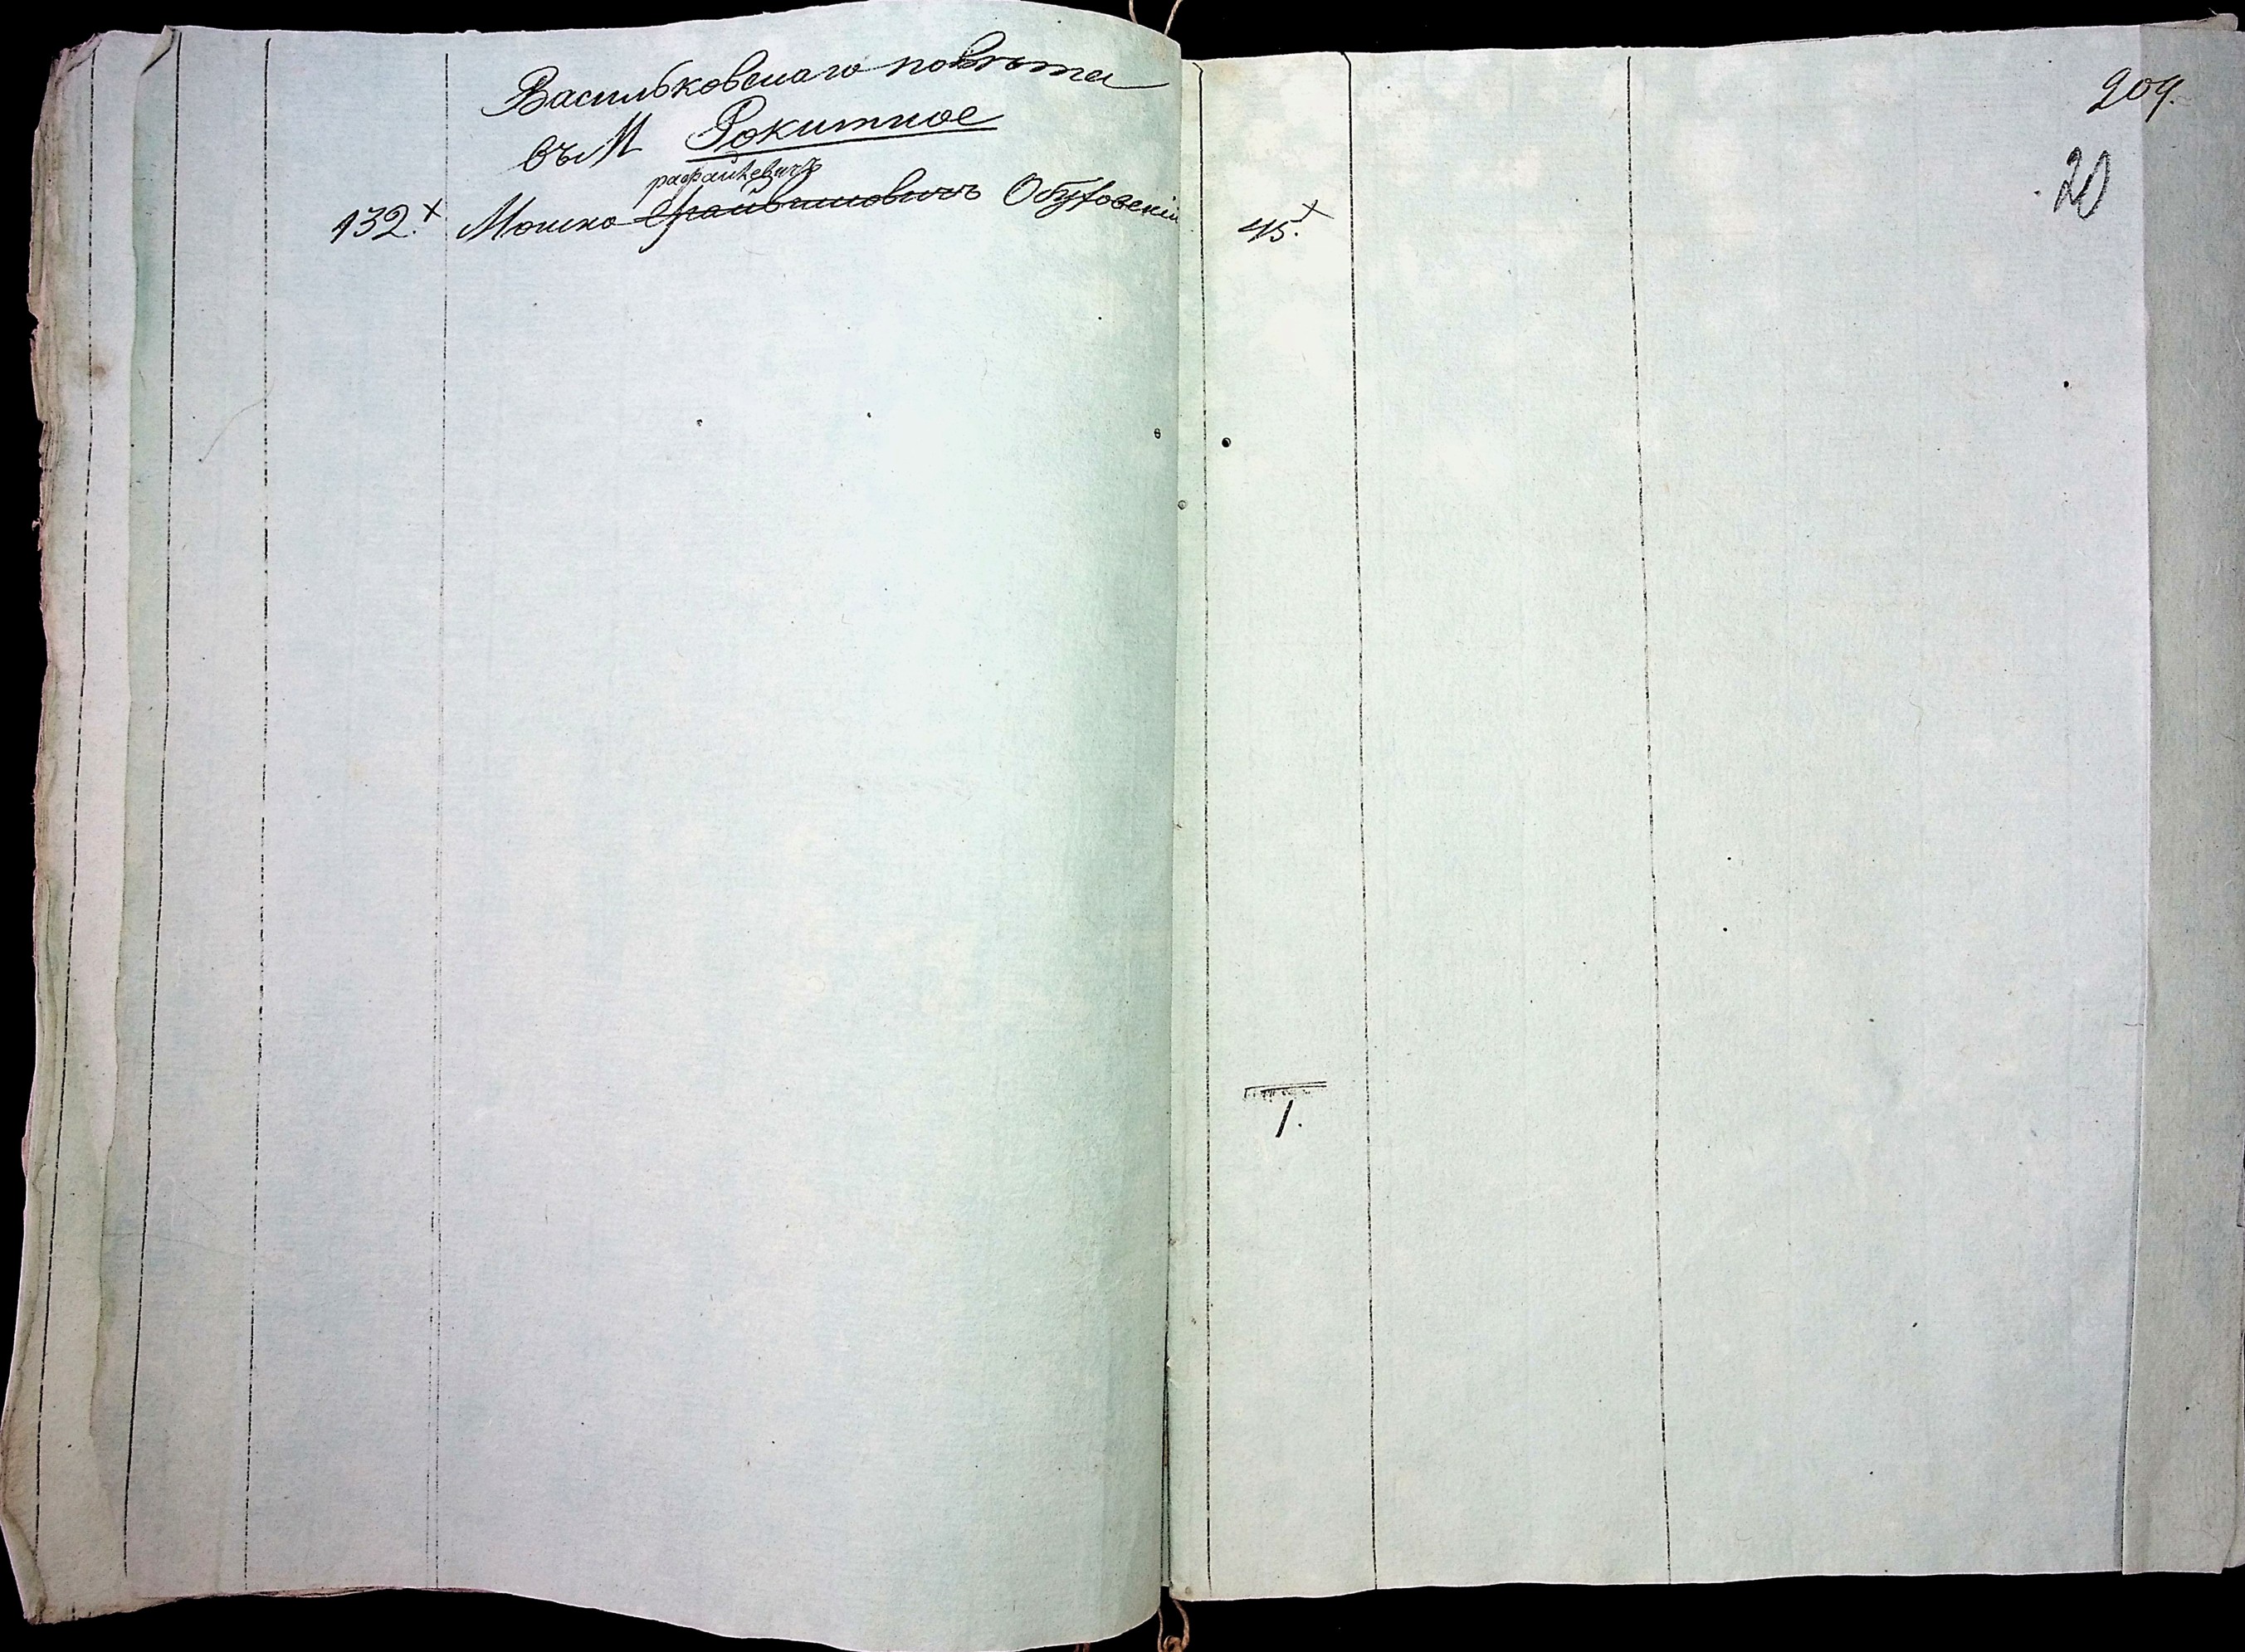 Васильковскаго повѣта
въ М Рокитное
рафаилевичъ
132.х Мошко Обуховскій 45.х
209.
20
1.